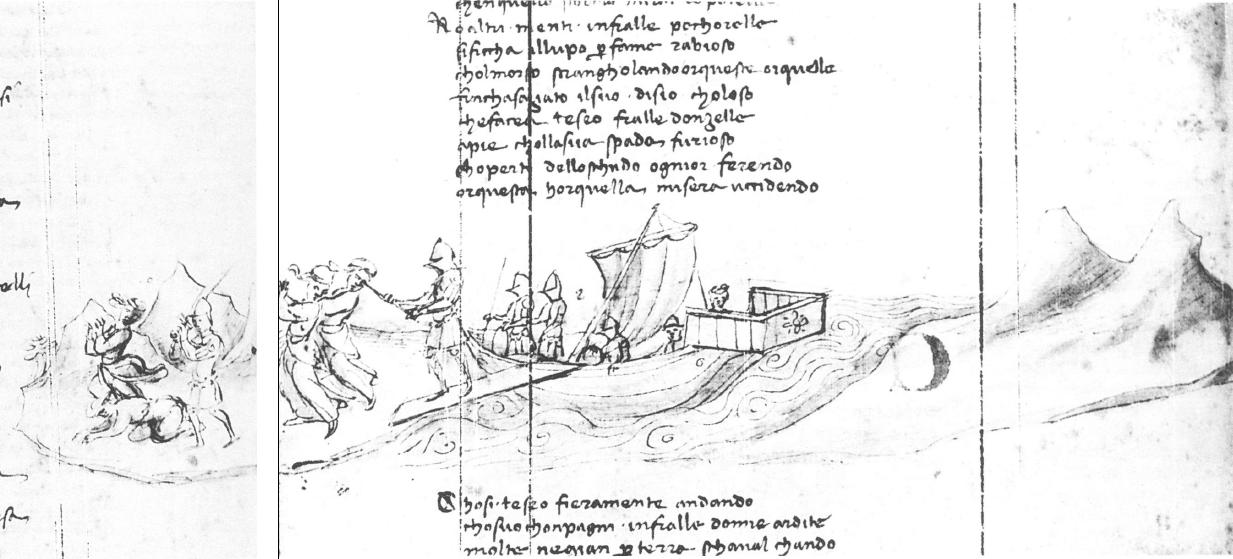 chenquello
No altri menti · infralle pechorelle
sificcha illupo ꝑ fame rabioso
cholmorso strangholando orqueste orquelle
finchasaziato ilsuo · disio choloso
chefacea teseo fralle donzelle
apie chollasua spada furioso
choperto delloschudo ognior ferendo
orquesta horquella misera uccidendo
Chosi · teseo fieramente andando
chosuo chonpagni · infralle donne ardite
molte neuan ꝑ terra schaual chando